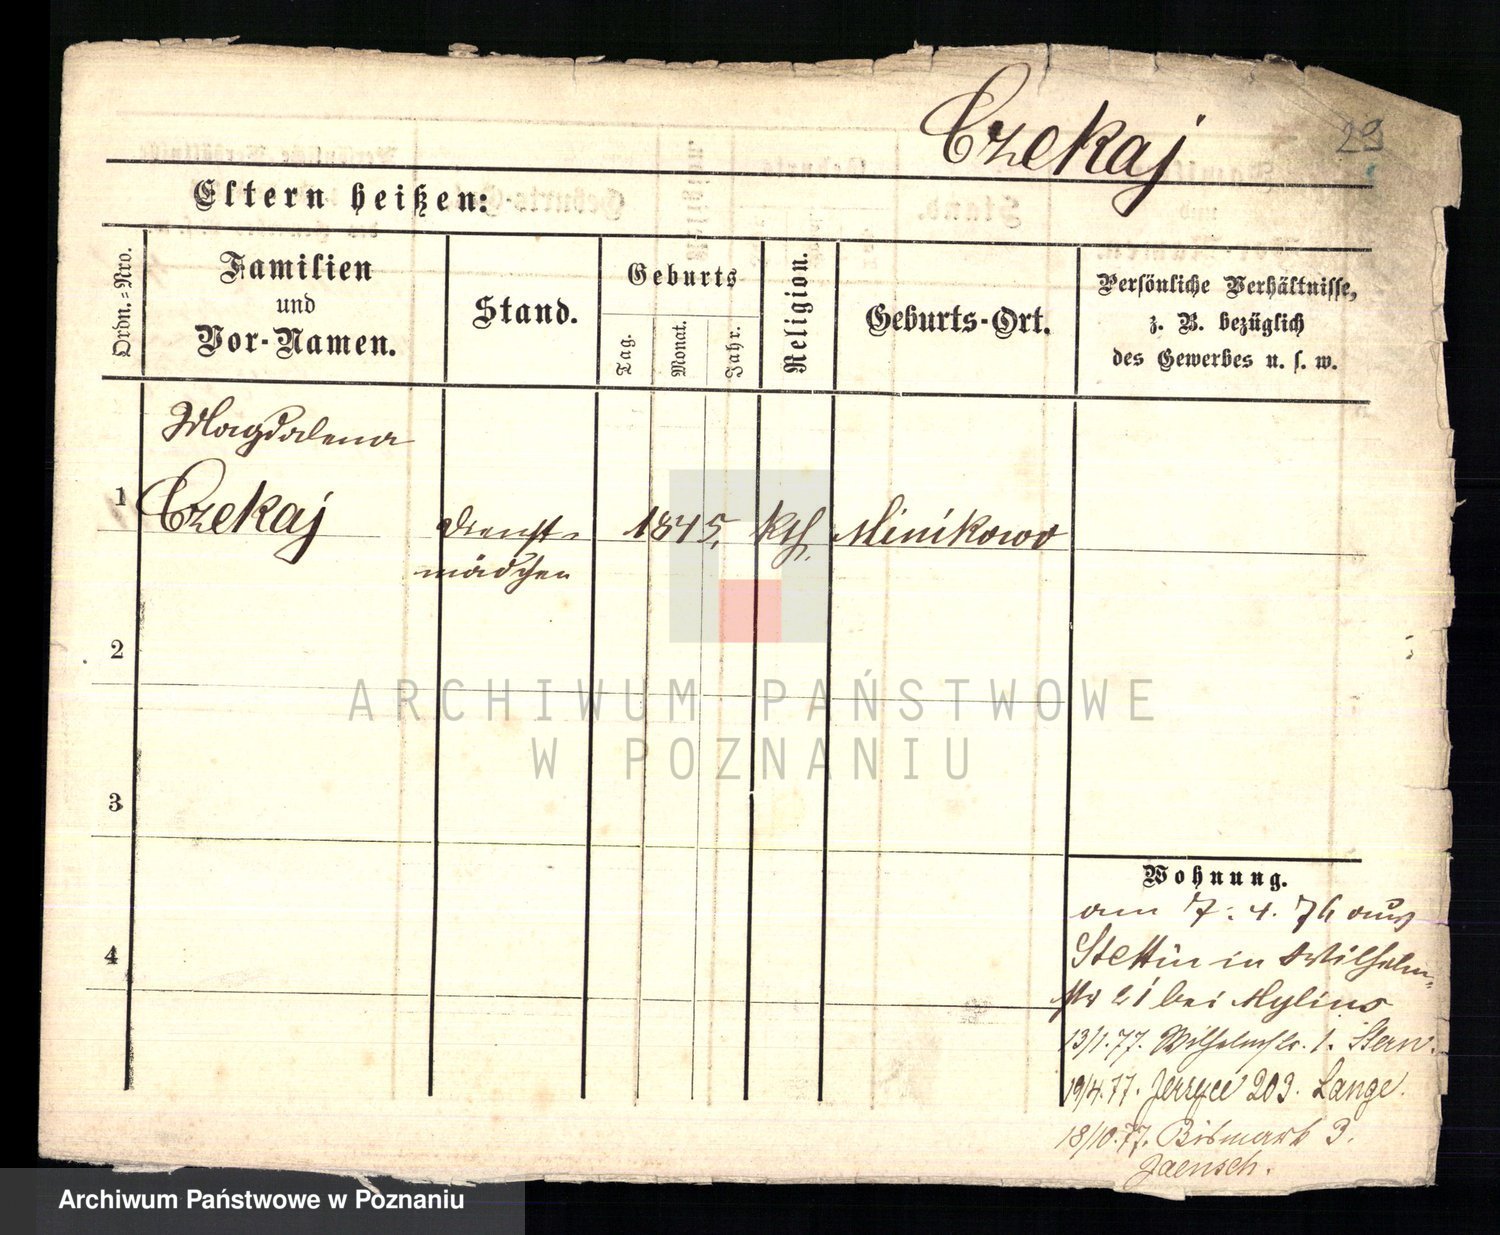 Czekaj
29
Eltern heißen:
Ordn.=Nro.
Familien
und
Vor-Namen.
Stand.
Geburts
Tag.
Monat.
Jahr.
Religion.
Geburts-Ort.
Persönliche Verhältnisse,
z. B. bezüglich
des Gewerbes u. s. w.
Magdalena
1 Czekaj Dienst- 1845, kth. Minikowo
mädchen
2
ARCHIWUM PAŃSTWOWE
W POZNANIU
3
Wohnung.
4
am 7. 4. 76 aus
Stettin in Wilhelm-
str 21 bei Mylius
13/1.77. Wilhelmstr. 1. Stern.
19/4.77. Jerzyce 203. Lange.
18/10.77. Bismark 3.
Jaensch.
Archiwum Państwowe w Poznaniu